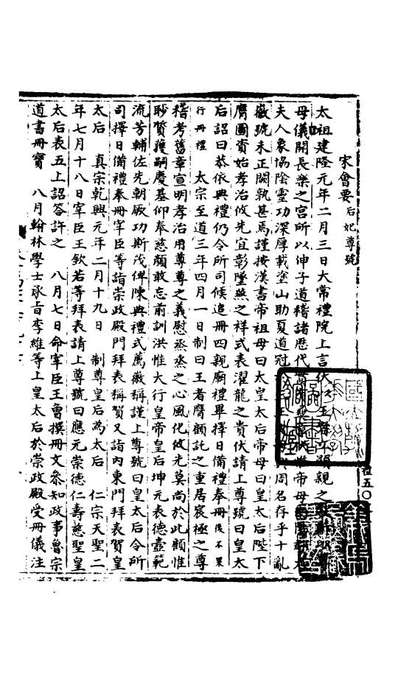 宋會要 后妃尊號
太祖建隆元年二月三日太常禮院上言伏以王者
母儀開長樂之宮所以伸子道稽諸歷代
夫人象協陰靈功深厚載塗山助夏道冠 周周名存乎十亂
徽號未正闕孰甚焉謹按漢書帝祖母曰太皇太后帝母曰皇太后陛下
膺圖資始孝治攸先宜彰墜燕之祥式表濯龍之貴伏請上尊號曰皇太
后詔曰恭依典禮仍令所司候追冊四親廟禮畢擇日備禮奉冊後不果
行冊禮 太宗至道三年四月一日制曰王者膺顧託之重居宸極之尊
稽考舊章宣明孝治用尊尊之義慰烝烝之心風化攸先莫尚於此顧惟
眇質獲嗣慶基仰奉慈顏敢忘前訓洪惟大行皇帝皇后坤元表德壼範
流芳輔佐先朝厥功斯茂俾陳典禮式薦徽稱謹上尊號曰皇太后令所
司擇日備禮奉冊宰臣等詣崇政殿門拜表稱賀又詣內東門拜表賀皇
太后 真宗乾興元年二月十九日 制尊皇后為太后 仁宗天聖二
年七月十八日宰臣王欽若等拜表請上尊號曰應元崇德仁壽慈聖皇
太后表五上詔答許之 八月七日命宰臣王曾撰冊文參知政事魯宗
道書冊寶 八月翰林學士承旨李維等上皇太后於崇政殿受冊儀注